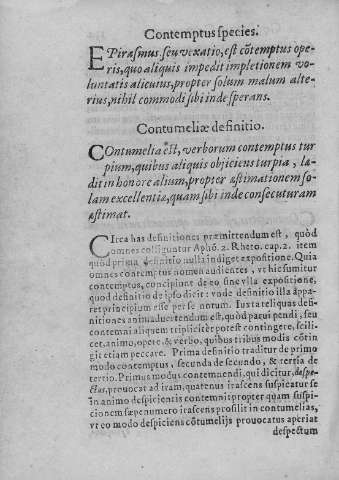 Contemptus species.
EPiræsmus seu vexatio, est cõtemptus ope-
ris, quo aliquis impedit impletionem vo-
luntatis alicuius, propter solum malum alte-
rius, nihil commodi sibi inde sperans.
Contumeliæ definitio.
COntumelia est, verborum contemptus tur
pium, quibus aliquis obijciens turpia, læ-
dit in honore alium, propter æstimationem so-
lam excellentiæ, quam sibi inde consecuturam
æstimat.
CIrca has definitiones præmittendum est, quòd
omnes colliguntur Aphò. 2. Rheto. cap. 2. item
quòd prima definitio nulla indiget expositione. Quia
omnes contemptus nomen audientes, vt hic sumitur
contemptus, concipiunt de eo sine vlla expositione,
quod definitio de ipso dicit: vnde definitio illa appa-
ret principium esse per se notum. Iuxta reliquas defi-
nitiones animaduertendum est, quòd paruipendi, seu
contemni aliquem tripliciter potest contingere, scili-
cet, animo, opere, & verbo, quibus tribus modis cõtin
git etiam peccare. Prima definitio traditur de primo
modo contemptus, secunda de secundo, & tertia de
tertio. Primus modus contemnendi, qui dicitur, despe-
ctus, prouocat ad iram, quatenus irascens suspicatur se
in animo despicientis contemni: propter quam suspi-
cionem sæpenumero irascens prosilit in contumelias,
vt eo modo despiciens cõtumelijs prouocatus aperiat
despectum